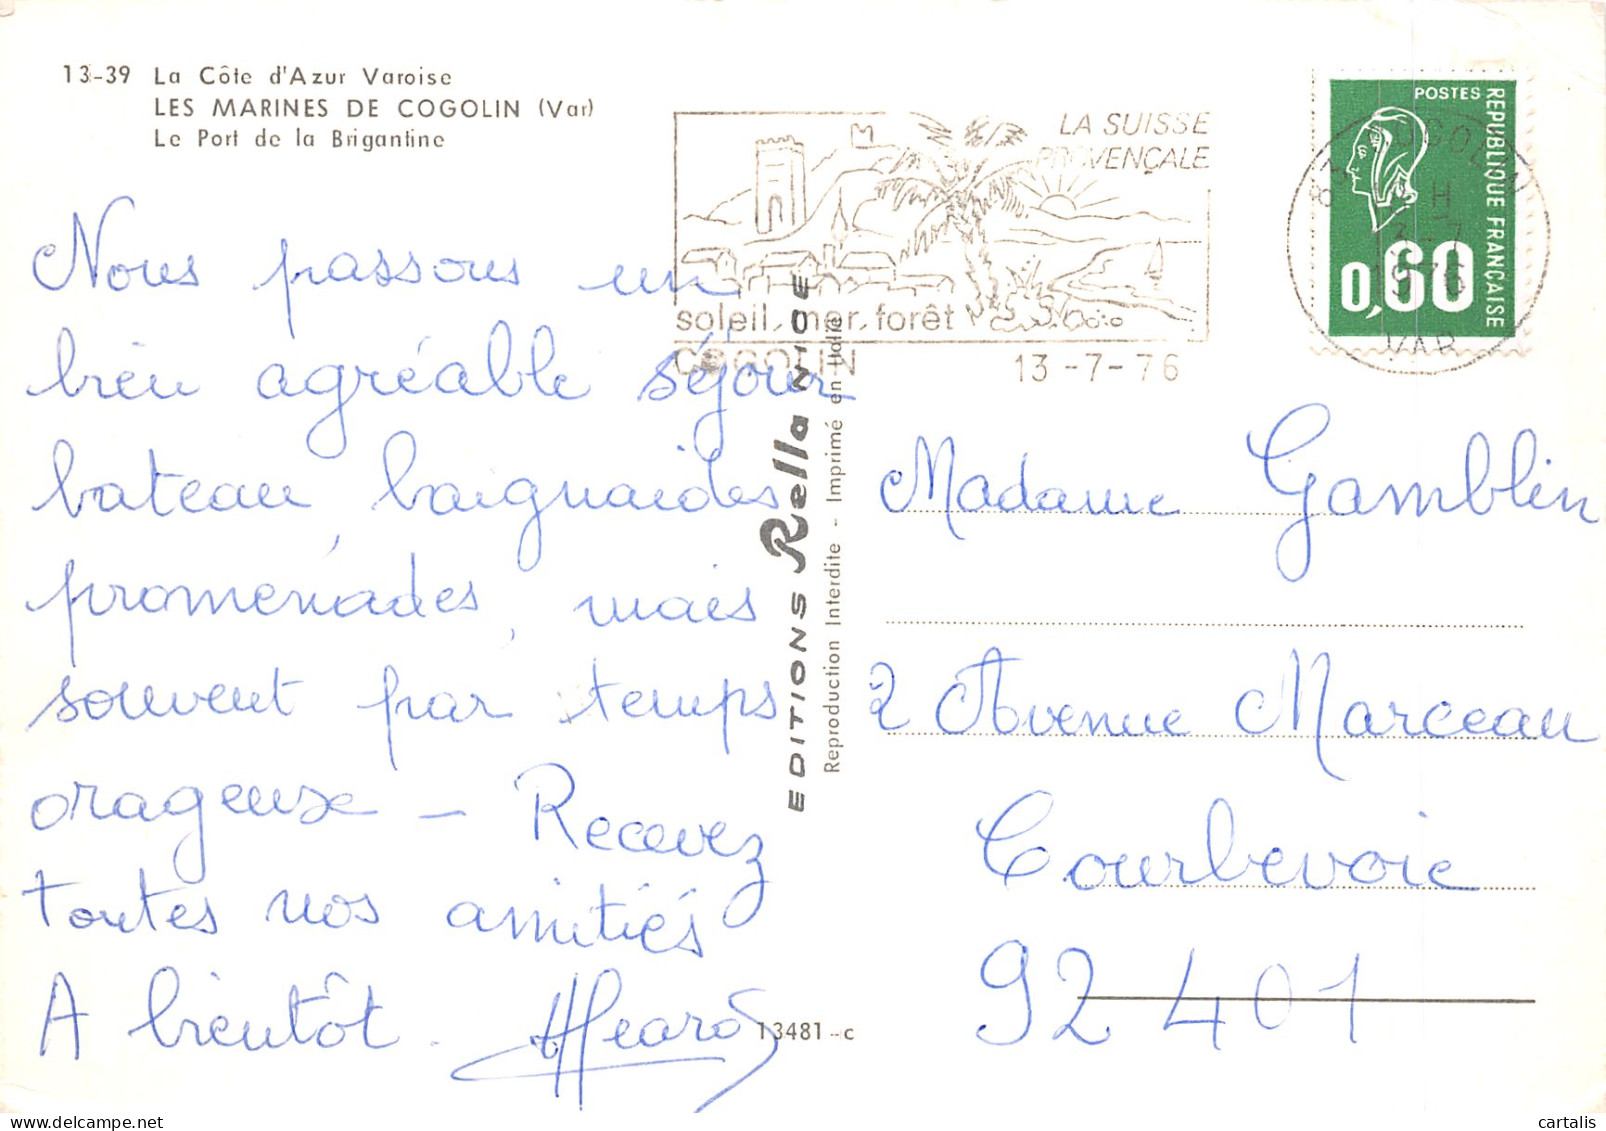 13-39 La Côte d'Azur Varoise
LES MARINES DE COGOLIN (Var)
Le Port de la Brigantine
Nous passons un
bien agréable séjour
bateau, baignades
promenades, mais
souvent par temps
orageuse _ Recevez
toutes nos amitiés
A bientôt.
LA SUISSE
PROVENÇALE
soleil, mer, forêt
COGOLIN
13-7-76
POSTES
REPUBLIQUE FRANÇAISE
0,60
83 COGOLIN
H
13-7
1976
VAR
EDITIONS Rella NICE
Reproduction Interdite - Imprimé en Italie
Madame Gamblin
2 Avenue Marceau
Courbevoie
92 401
13481-c
cartalis